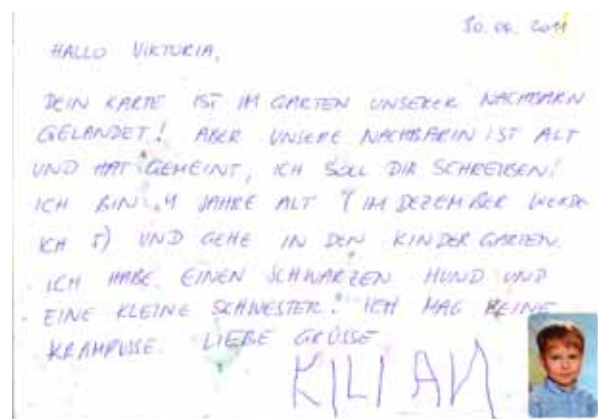 30.06.2011
HALLO VIKTORIA,
DEIN KARTE IST IM GARTEN UNSERER NACHBARN
GELANDET! ABER UNSERE NACHBARIN IST ALT
UND HAT GEMEINT, ICH SOLL DIR SCHREIBEN!
ICH BIN 4 JAHRE ALT (IM DEZEMBER WERDE
ICH 5) UND GEHE IN DEN KINDERGARTEN.
ICH HABE EINEN SCHWARZEN HUND UND
EINE KLEINE SCHWESTER. ICH MAG KEINE
KRAMPUSSE. LIEBE GRÜSSE
KILIAN